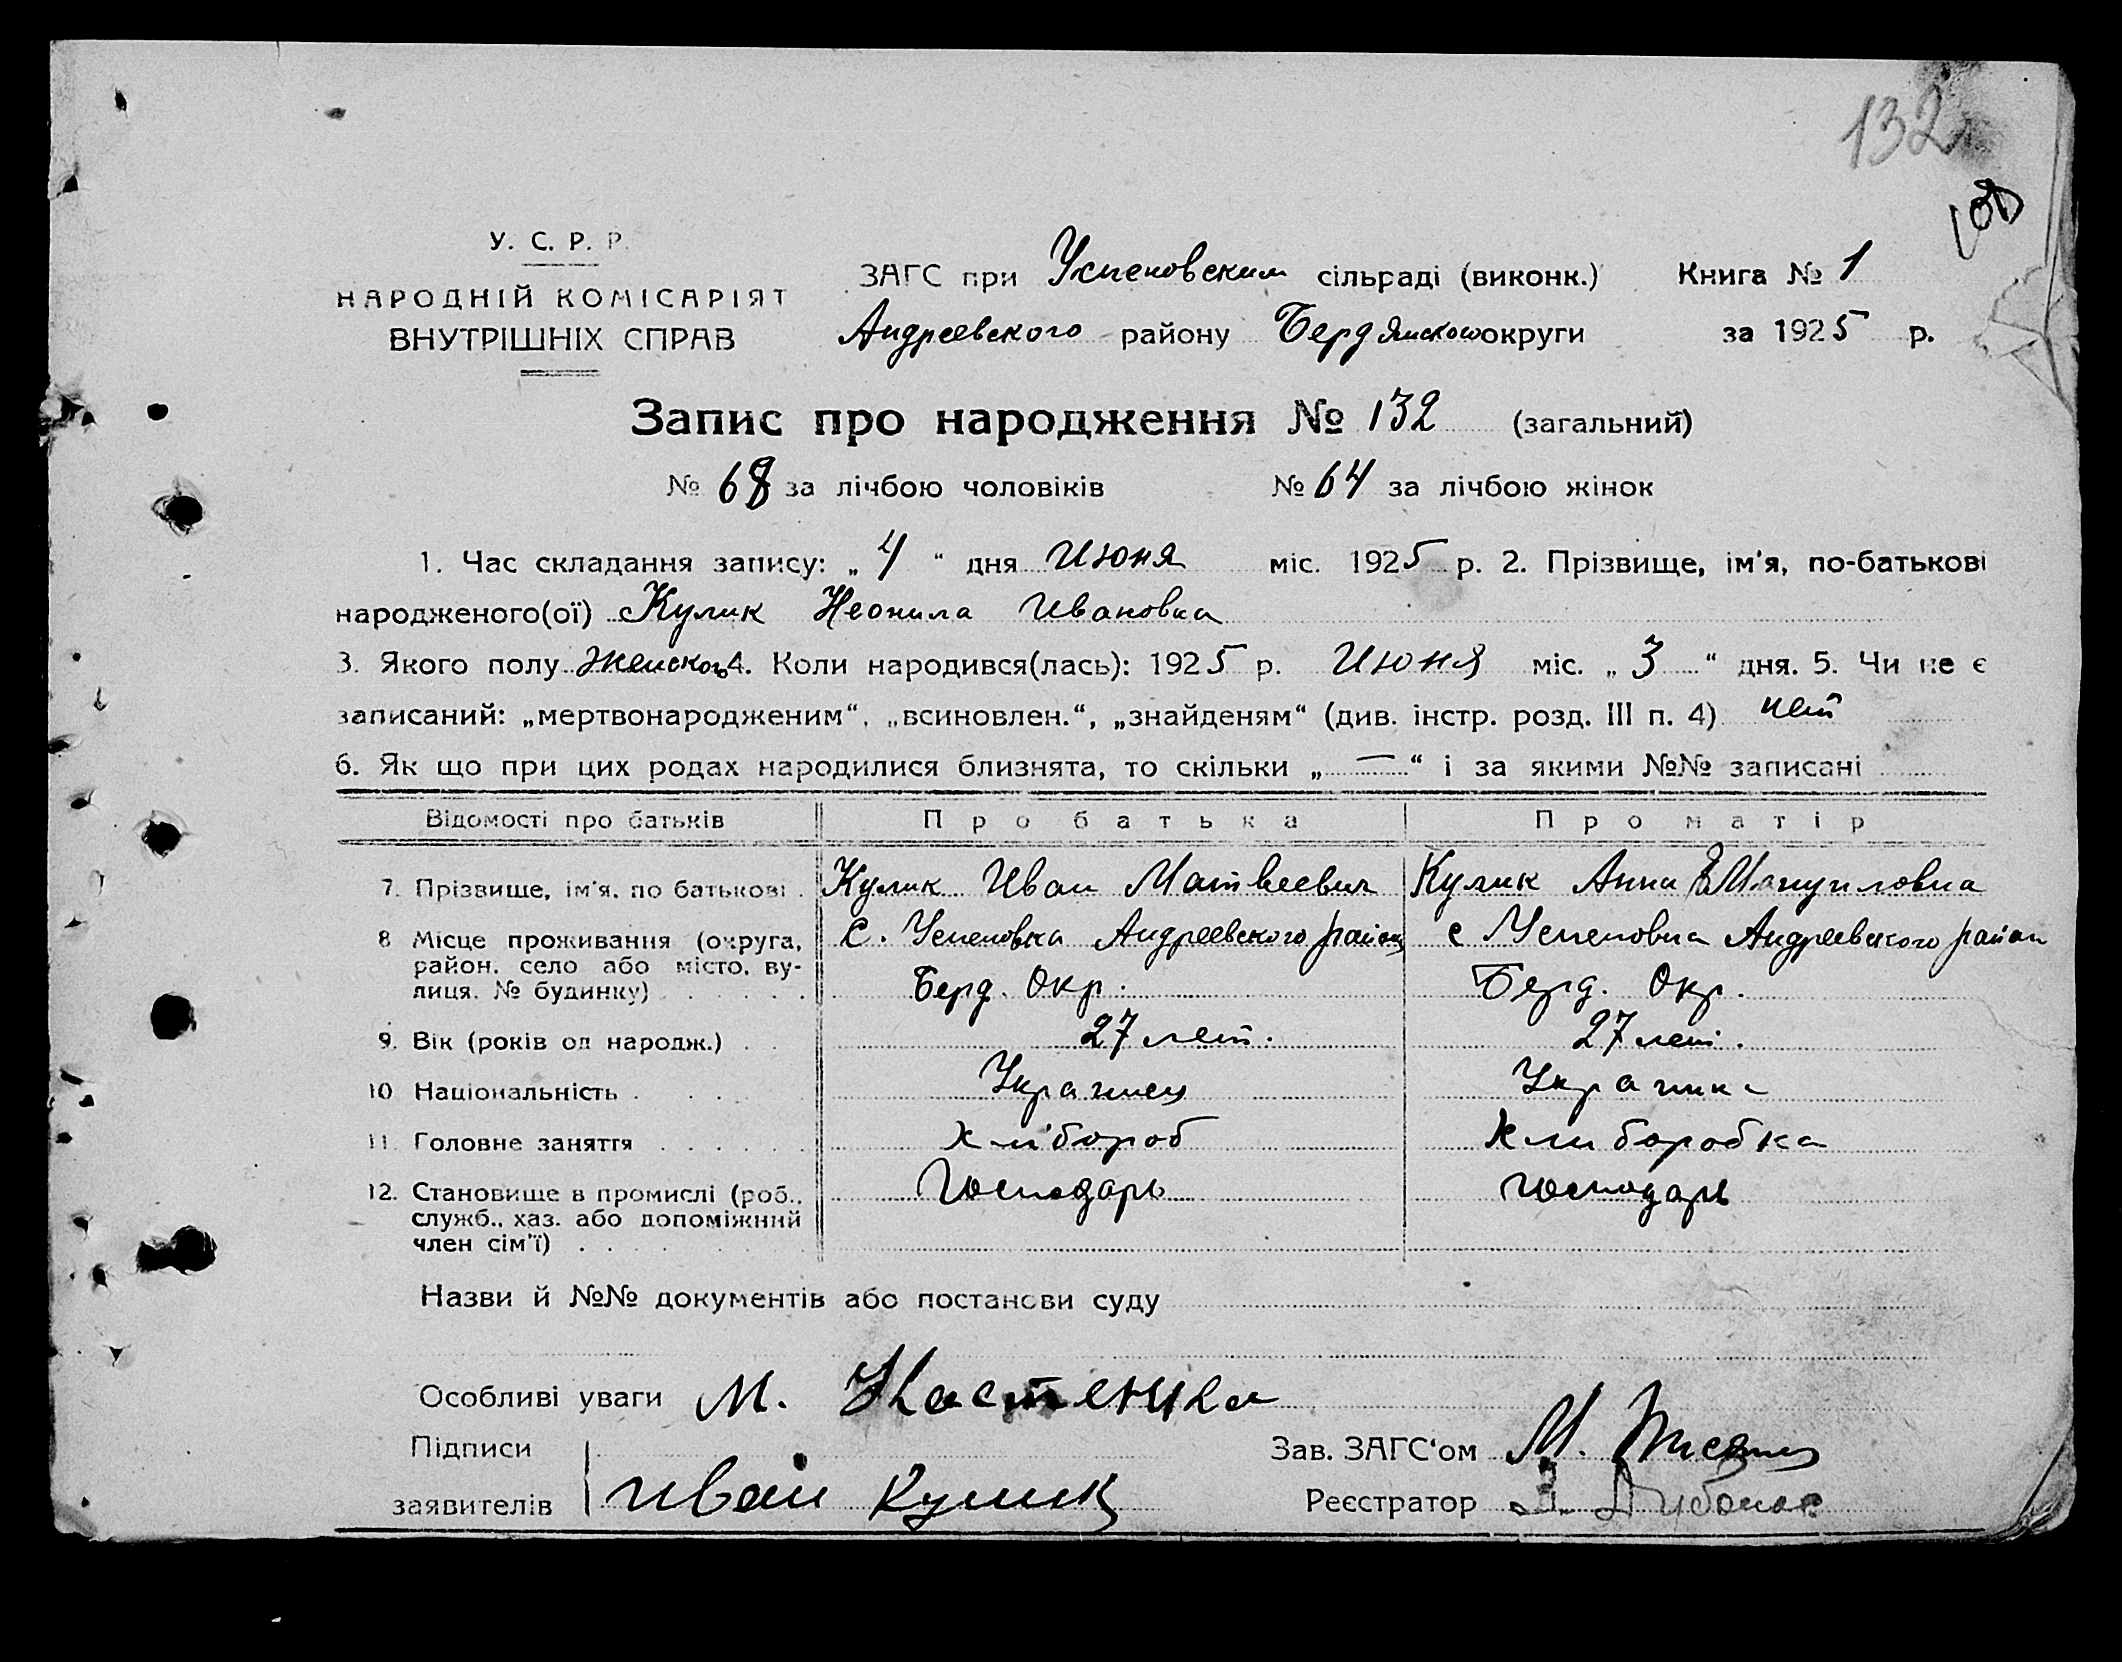 132
У. С. Р. Р.
НАРОДНІЙ КОМІСАРІЯТ
ВНУТРІШНІХ СПРАВ
ЗАГС при Успеновским сільраді (виконк.) Книга № 1
Андреевского району Бердянского округи за 1925 р.
Запис про народження № 132 (загальний)
№ 68 за лічбою чоловіків № 64 за лічбою жінок
1. Час складання запису: „ 4 “ дня Июня міс. 1925 р. 2. Прізвище, ім'я, по-батькові
народженого(ої) Кулик Неонила Ивановна
3. Якого полу женского 4. Коли народився(лась): 1925 р. Июня міс. „ 3 “ дня. 5. Чи не є
записаний: „мертвонародженим“, „всиновлен.“, „знайденям“ (див. інстр. розд. III п. 4) нет
6. Як що при цих родах народилися близнята, то скільки „ — “ і за якими №№ записані
Відомості про батьків Про батька Про матір
7. Прізвище, ім'я, по батькові Кулик Иван Матвеевич Кулик Анна Мануиловна
8 Місце проживання (округа, с. Успеновка Андреевского района с Успеновка Андреевского район
район, село або місто, ву-
лиця, № будинку) Берд. Окр. Берд. Окр.
9. Вік (років од народж.) 27 лет. 27 лет.
10 Національність Украинец Украинка
11. Головне заняття хлібороб хлиборобка
12. Становище в промислі (роб., Господарь господарь
служб., хаз. або допоміжний
член сім'ї)
Назви й №№ документів або постанови суду
Особливі уваги М.
Підписи
заявителів Иван Кулик
Зав. ЗАГС‘ом М.
Реєстратор З.